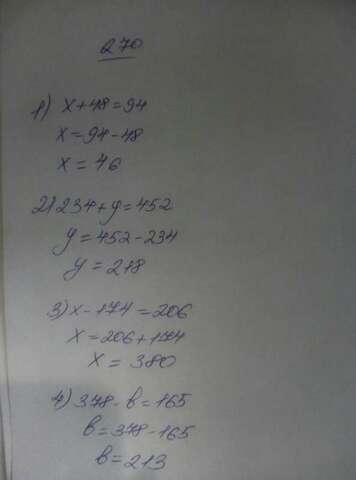 270
1) x+48=94
x=94-48
x=46
2) 234+y=452
y=452-234
y=218
3) x-174=206
x=206+174
x=380
4) 378-b=165
b=378-165
b=213